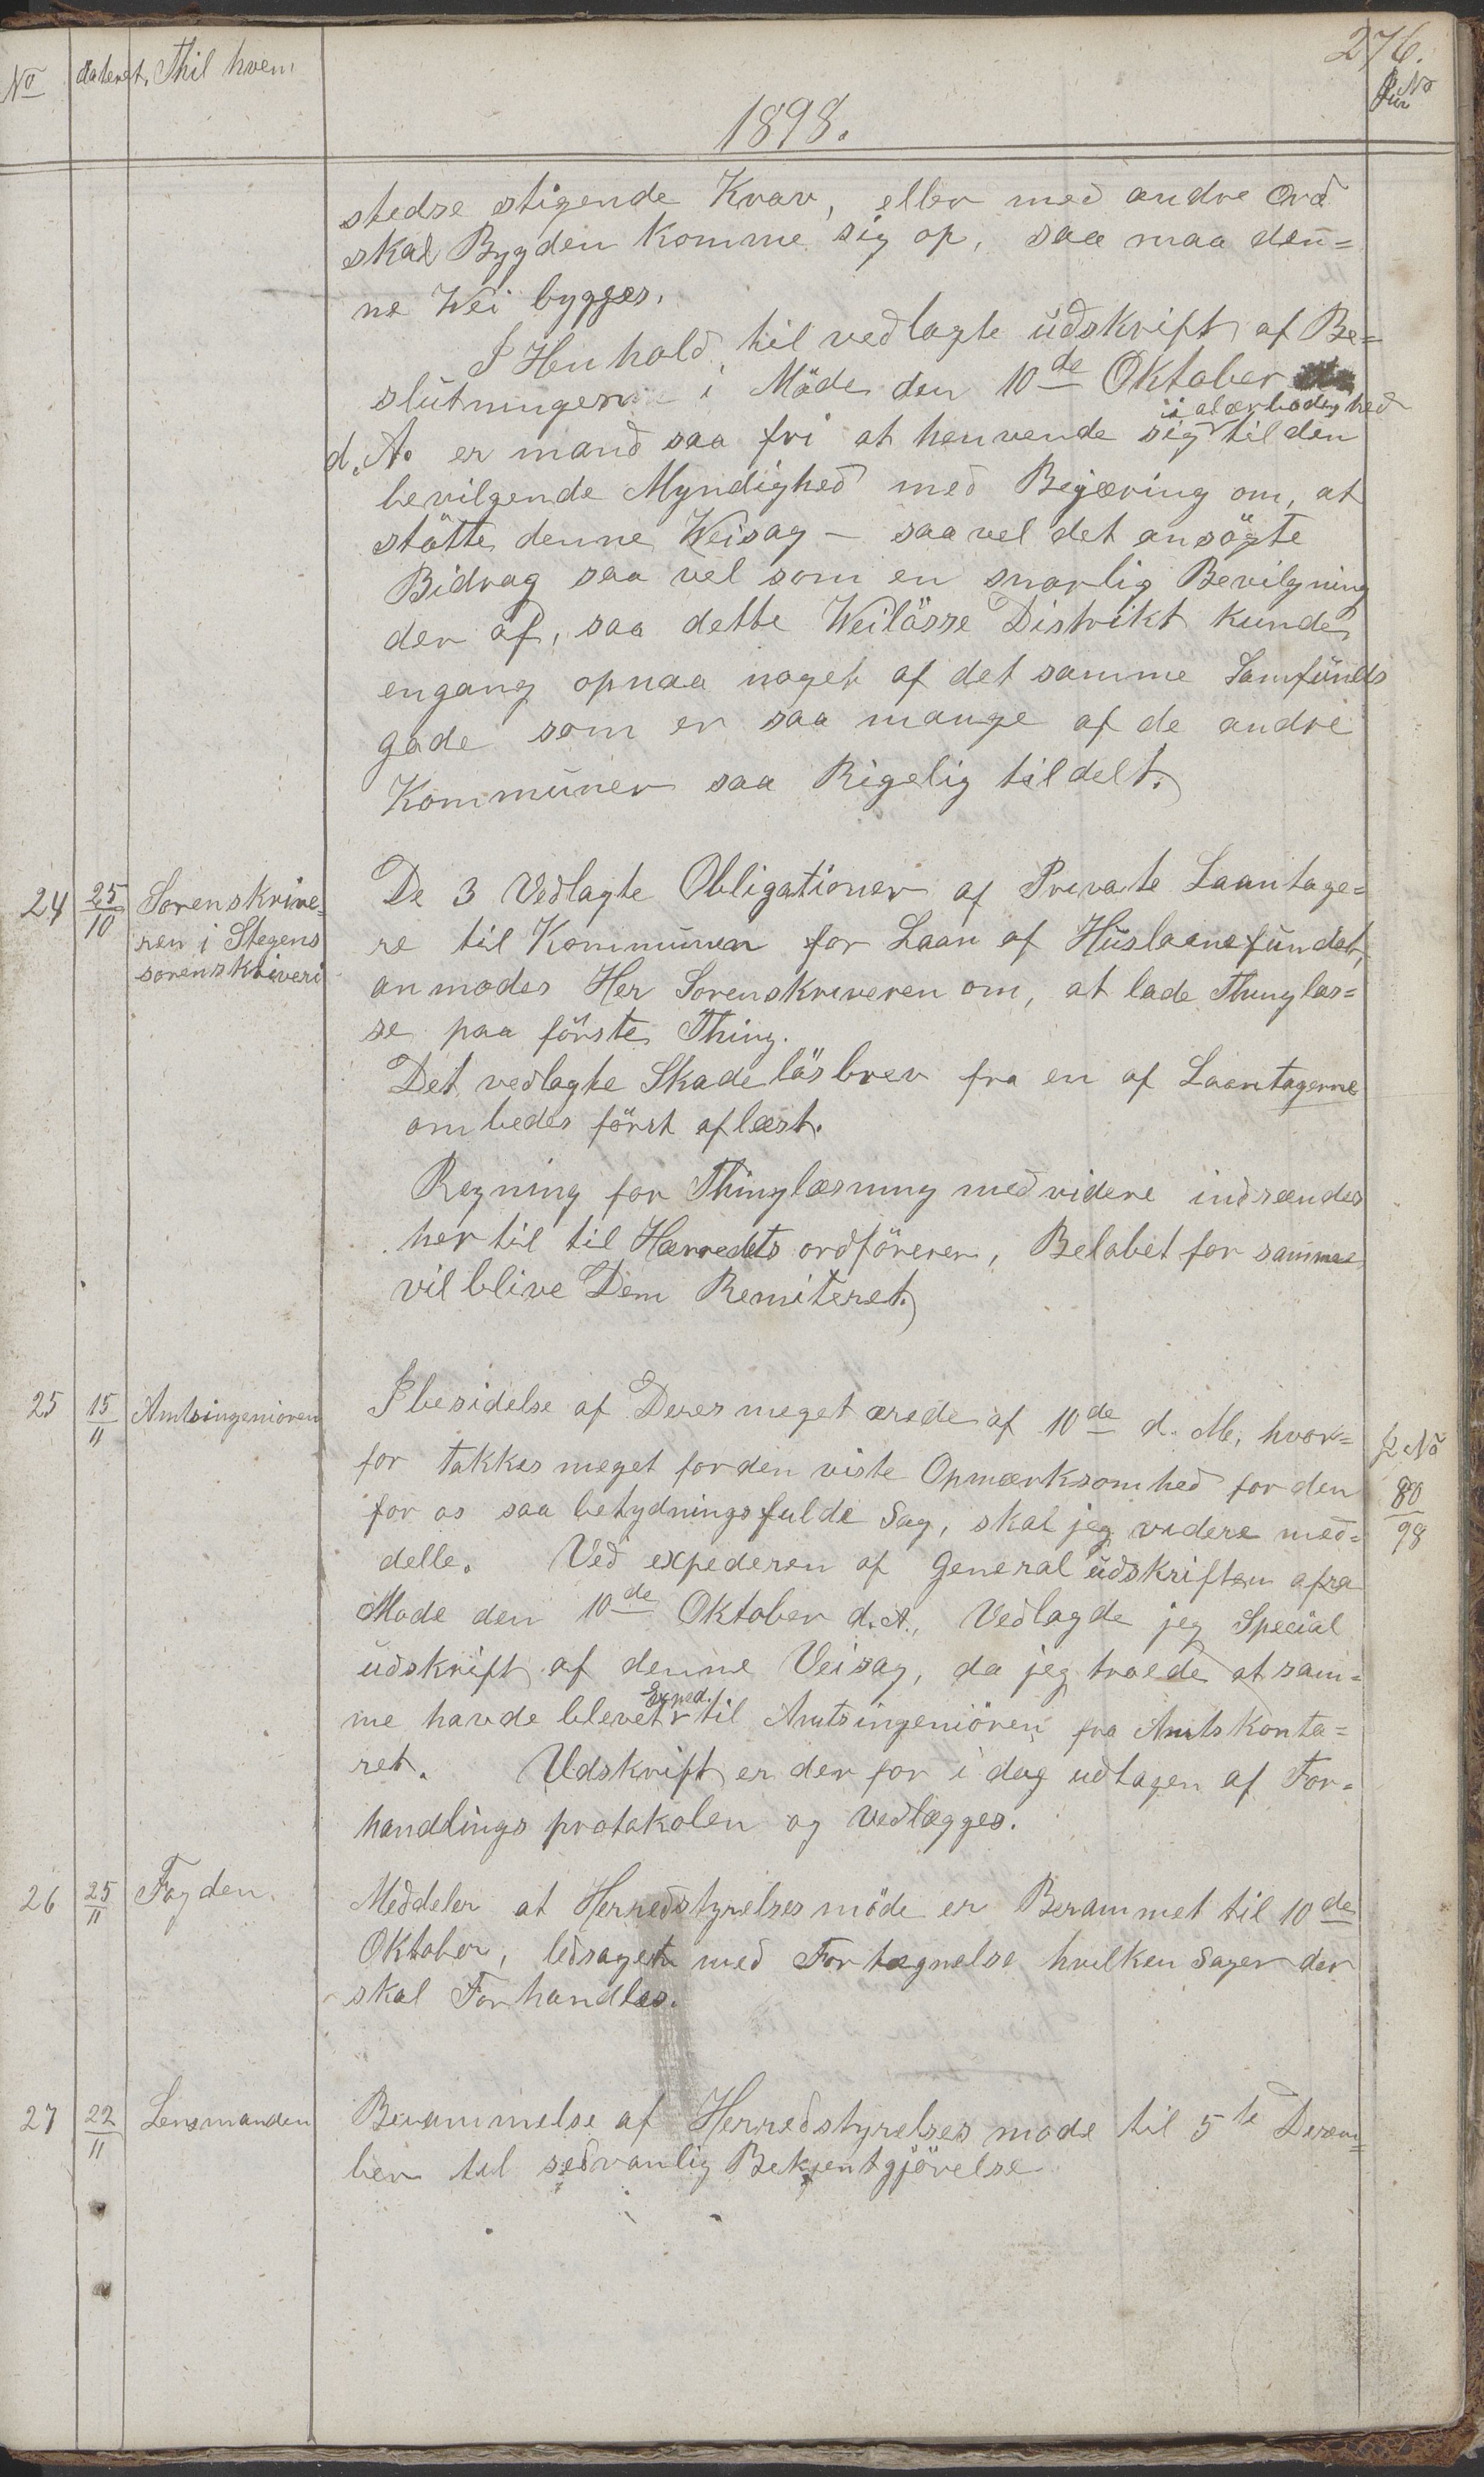 276.
No dateret. Thil hvem
Jur No
1898.
stedse stigende Krav, eller med andre Ord
skal Bygden komme sig op, saa maa den=
ne Wei bygges.
I Henhold til vedlagte udskrift af Be=
slutningerne i Möde den 10de Oktober
i alærbödighed
d. A. er mand saa fri at henvende sig til den
bevilgende Myndighed med Begjæring om, at
stötte denne Weisag – saavel det ansögte
Bidrag saa vel som en snarlig Bevilgning
der af, saa dette Weilösse Distrikt kunde
engang opnaa noget af det samme Samfunds
gode som er saa mange af de andre
Kommuner saa Rigelig tildelt.
24 25/10 Sorenskrive=
ren i Stegens
sorenskriveri
De 3 Vedlagte Obligationer af Private Laantage=
re til Kommunen for Laan af Huslaanefundet,
anmodes Her Sorenskriveren om, at lade Thinglæs=
se paa förste Thing.
Det vedlagte Skadelösbrev fra en af Laantagerne
ombedes först aflæst.
Regning for Thinglæsning med videre indsændes
her til til Hærredets ordföreren, Belöbet for samme
vil blive Dem Remiteret.
25 15/11 Amtsingeniören
I besidelse af Deres meget ærede af 10de d. M, hvor=
for takkes meget for den viste Opmærksomhed for den
for os saa betydningsfulde Sag, skal jeg videre med=
delle. Ved expederen af General udskriften afra
Mode den 10de Oktober d. A., Vedlagde jeg Special
udskrift af denne Veisag, da jeg troede at sam=
Exped.
me havde blevet til Amtsingeniören fra Amtskonto=
ret. Udskrift er der for i dag udtagen af For=
handlings protokolen og Vedlægges.
J. No
80/98
26 25/11 Fogden.
Meddeler at Herredstyrelses möde er Berammet til 10de
Oktober, ledsaget med Fortegnelse hvilken Sager der
skal Forhandles.
27 22/11 Lensmanden
Berammelse af Herredstyrelses mode til 5te Decem=
ber til sedvanlig Bekjentgjörelse